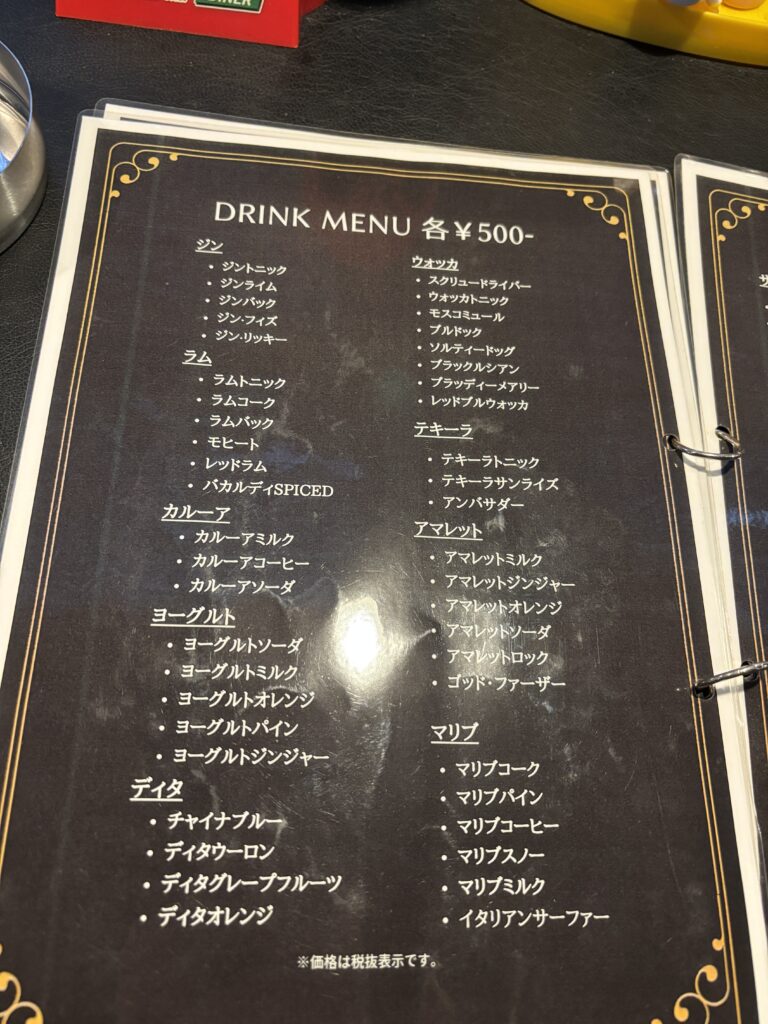 DINER
DRINK MENU 各￥500-
ジン
・ジントニック
・ジンライム
・ジンバック
・ジン・フィズ
・ジン・リッキー
ラム
・ラムトニック
・ラムコーク
・ラムバック
・モヒート
・レッドラム
・バカルディSPICED
カルーア
・カルーアミルク
・カルーアコーヒー
・カルーアソーダ
ヨーグルト
・ヨーグルトソーダ
・ヨーグルトミルク
・ヨーグルトオレンジ
・ヨーグルトパイン
・ヨーグルトジンジャー
ディタ
・チャイナブルー
・ディタウーロン
・ディタグレープフルーツ
・ディタオレンジ
ウォッカ
・スクリュードライバー
・ウォッカトニック
・モスコミュール
・ブルドック
・ソルティードッグ
・ブラックルシアン
・ブラッディーメアリー
・レッドブルウォッカ
テキーラ
・テキーラトニック
・テキーラサンライズ
・アンバサダー
アマレット
・アマレットミルク
・アマレットジンジャー
・アマレットオレンジ
・アマレットソーダ
・アマレットロック
・ゴッド・ファーザー
マリブ
・マリブコーク
・マリブパイン
・マリブコーヒー
・マリブスノー
・マリブミルク
・イタリアンサーファー
※価格は税抜表示です。